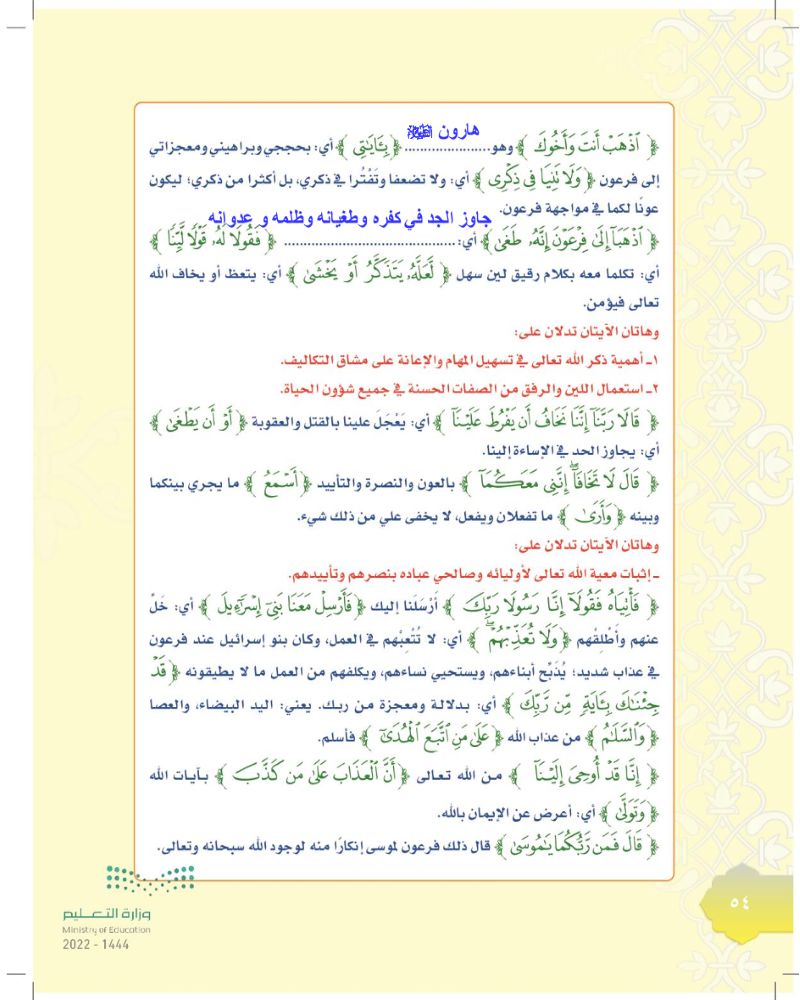 هارون ﷺ
﴿ ٱذۡهَبۡ أَنتَ وَأَخُوكَ ﴾ وهو...................... ﴿ بِـَٔايَٰتِي ﴾ أي: بحججي وبراهيني ومعجزاتي
إلى فرعون ﴿ وَلَا تَنِيَا فِي ذِكۡرِي ﴾ أي: ولا تضعفا وتَفْتُرا في ذكري، بل أكثرا من ذكري؛ ليكون
عونًا لكما في مواجهة فرعون.
جاوز الجد في كفره وطغيانه وظلمه و عدوانه
﴿ ٱذۡهَبَآ إِلَىٰ فِرۡعَوۡنَ إِنَّهُۥ طَغَىٰ ﴾ أي: ........................................... ﴿ فَقُولَا لَهُۥ قَوۡلٗا لَّيِّنٗا ﴾
أي: تكلما معه بكلام رقيق لين سهل ﴿ لَّعَلَّهُۥ يَتَذَكَّرُ أَوۡ يَخۡشَىٰ ﴾ أي: يتعظ أو يخاف الله
تعالى فيؤمن.
وهاتان الآيتان تدلان على:
١ـ أهمية ذكر الله تعالى في تسهيل المهام والإعانة على مشاق التكاليف.
٢ـ استعمال اللين والرفق من الصفات الحسنة في جميع شؤون الحياة.
﴿ قَالَا رَبَّنَآ إِنَّنَا نَخَافُ أَن يَفۡرُطَ عَلَيۡنَآ ﴾ أي: يَعْجَلَ علينا بالقتل والعقوبة ﴿ أَوۡ أَن يَطۡغَىٰ ﴾
أي: يجاوز الحد في الإساءة إلينا.
﴿ قَالَ لَا تَخَافَآۖ إِنَّنِي مَعَكُمَآ ﴾ بالعون والنصرة والتأييد ﴿ أَسۡمَعُ ﴾ ما يجري بينكما
وبينه ﴿ وَأَرَىٰ ﴾ ما تفعلان ويفعل، لا يخفى علي من ذلك شيء.
وهاتان الآيتان تدلان على:
ـ إثبات معية الله تعالى لأوليائه وصالحي عباده بنصرهم وتأييدهم.
﴿ فَأۡتِيَاهُ فَقُولَآ إِنَّا رَسُولَا رَبِّكَ ﴾ أَرْسَلَنا إليك ﴿ فَأَرۡسِلۡ مَعَنَا بَنِيٓ إِسۡرَٰٓءِيلَ ﴾ أي: خَلِّ
عنهم وأَطْلقْهم ﴿ وَلَا تُعَذِّبۡهُمۡۖ ﴾ أي: لا تُتْعِبْهم في العمل، وكان بنو إسرائيل عند فرعون
في عذاب شديد؛ يُذَبِّح أبناءهم، ويستحيي نساءهم، ويكلفهم من العمل ما لا يطيقونه ﴿ قَدۡ
جِئۡنَٰكَ بِـَٔايَةٖ مِّن رَّبِّكَ ﴾ أي: بدلالة ومعجزة من ربك. يعني: اليد البيضاء، والعصا
﴿ وَٱلسَّلَٰمُ ﴾ من عذاب الله ﴿ عَلَىٰ مَنِ ٱتَّبَعَ ٱلۡهُدَىٰٓ ﴾ فأسلم.
﴿ إِنَّا قَدۡ أُوحِيَ إِلَيۡنَآ ﴾ من الله تعالى ﴿ أَنَّ ٱلۡعَذَابَ عَلَىٰ مَن كَذَّبَ ﴾ بآيات الله
﴿ وَتَوَلَّىٰ ﴾ أي: أعرض عن الإيمان بالله.
﴿ قَالَ فَمَن رَّبُّكُمَا يَٰمُوسَىٰ ﴾ قال ذلك فرعون لموسى إنكارًا منه لوجود الله سبحانه وتعالى.
٥٤
وزارة التعـــليم
Ministry of Education
2022 - 1444